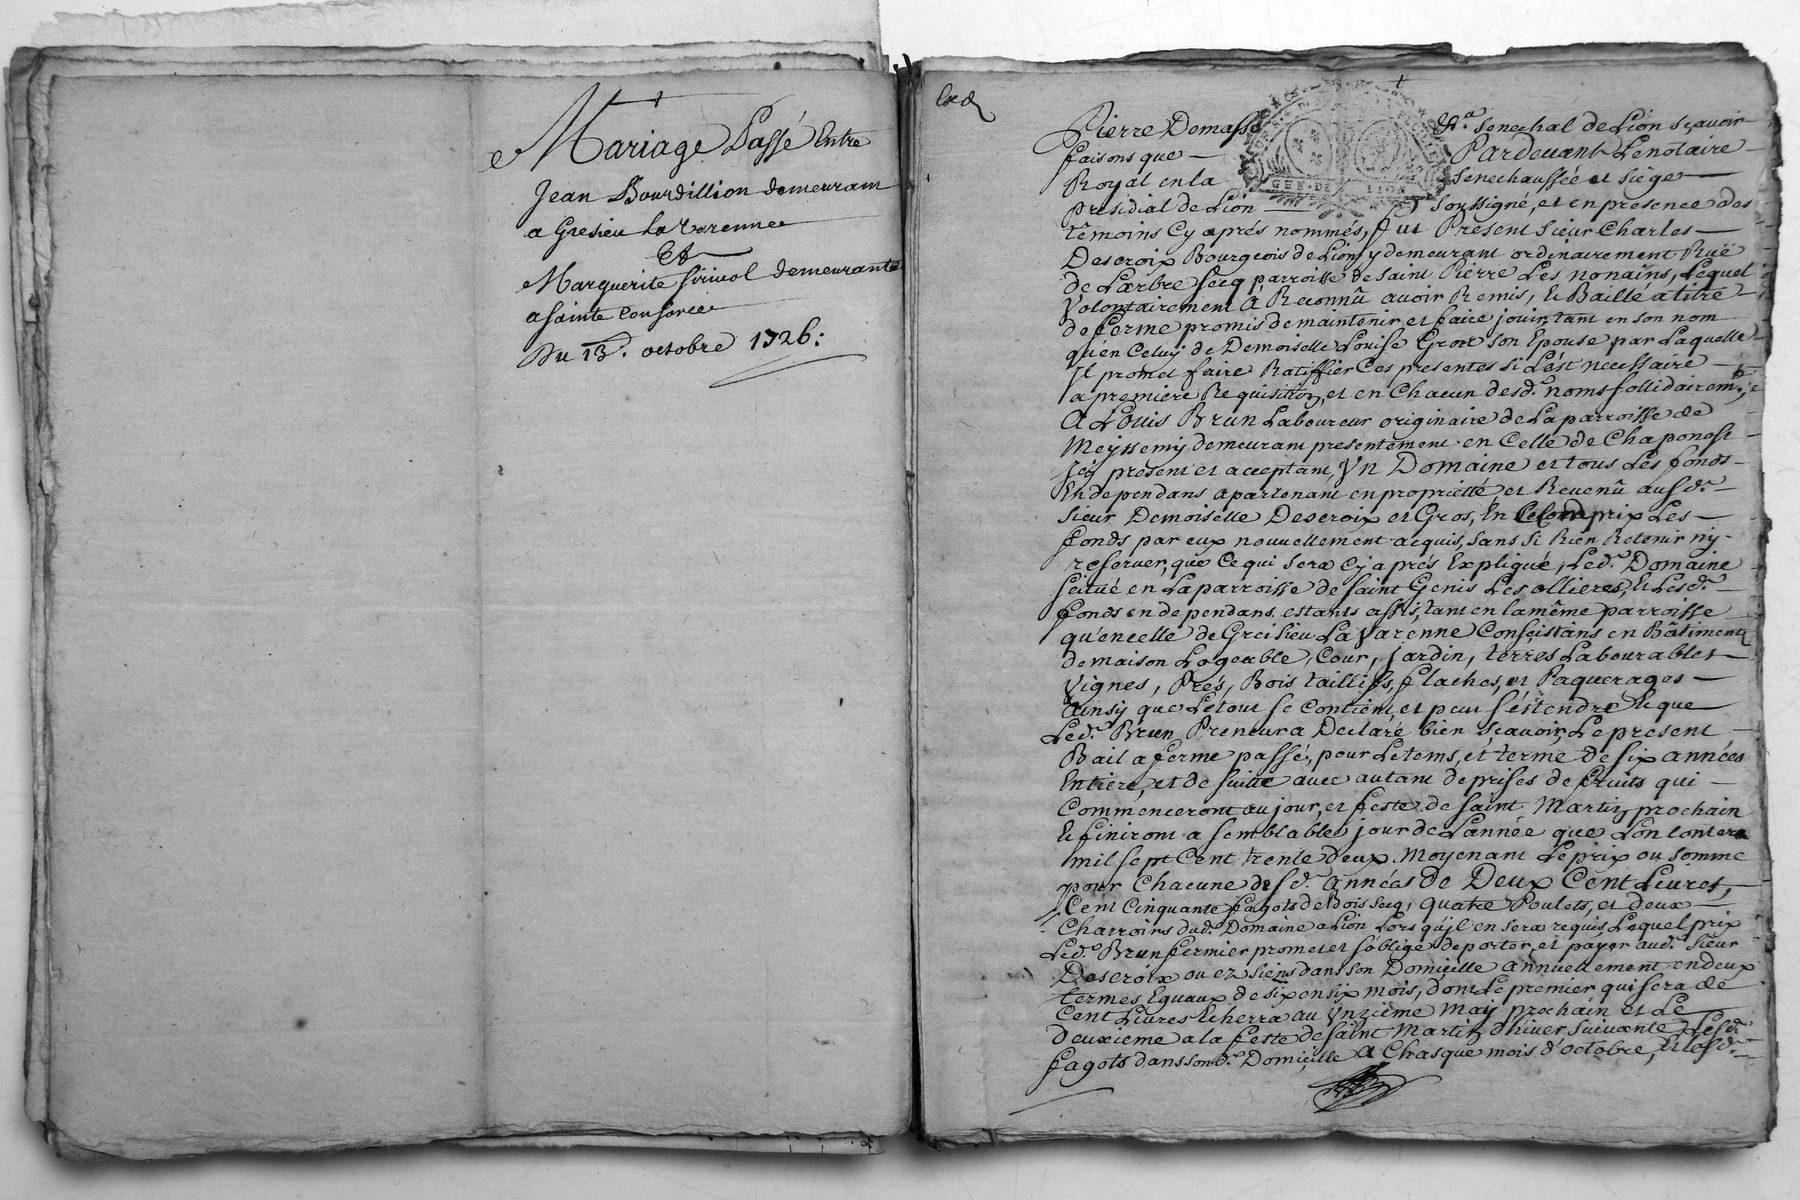 Mariage Passé Entre
Jean Bourdillion demeurant
a Gresieu La Varenne
Et
Marguerite demeurante
a Sainte Consorce
Du 13e. octobre 1726:
Exd
Pierre Demasso Senechal de Lion sçavoir
faisons que Pardevant Le notaire
Royal en la Senechaussée et siège
Presidial de Lion Soussigné, et en presence des
têmoins Cy aprés nommés, fut Present Sieur Charles
Descroix Bourgeois de Lion y demeurant ordinairement Rüe
de Larbre Secq parroisse de Saint Pierre Les nonains, Lequel
Volontairement A Reconnû avoir Remis, et Baillé a titre
de ferme promis de maintenir et faire jouir, tant en son nom
qu'en Celuy de Demoiselle Louise Gros son Epouse par Laquelle
Il promet faire Ratiffier Ces presentes si L'ést necessaire
a premiere Requisition, et en Chacun desd. noms sollidairemt,
A Louis Brun Laboureur originaire de La parroisse de
Meyssemy demeurant presentement en Celle de Chaponost
Icy present et acceptant, Vn Domaine et tous Les fonds
En dependans apartenant en proprietté et Revenû ausd.
Sieur Demoiselle Descroix et Gros, En Ce Compris Les
fonds par eux nouvellement acquis, sans si Rien Retenir ny
reserver, que Ce qui sera Cy aprés Expliqué, Led. Domaine
Scitué en La parroisse de Saint Genis Les ollieres, et Lesd.
fonds en dependans estants assis, tant en la même parroisse
qu'en celle de Greisieu La Varenne Consistans en Bâtiments
de maison Logeable, Cour, Jardin, terres Labourables
Vignes, Prés, Bois taillifs, flaches, et Paquerages
Ainsy que Le tout se Contient, et peut s'éstendre et que
Led. Brun Preneur a Declaré bien sçavoir, Le present
Bail a ferme passé, pour Le tems, et terme de six années
Entiere, et de suitte avec autant de prises de fruits qui
Commenceront au jour, et feste de Saint Martin prochain
et finiront a semblable jour de L'année que L'on Contera
mil sept Cent trente deux Moyenant Le prix ou somme
pour Chacune desd. années de Deux Cent Livres,
Cent Cinquante fagots de bois secq, quatre Poulets, et deux
Charroirs dud. Domaine a Lion Lors qu'jl en sera requis, Lequel prix
Led. Brun fermier promet et s'oblige de porter, et payer aud. Sieur
Descroix ou ez siens dans son Domicille annuellement en deux
termes Egaux de six en six mois, dont Le premier qui sera de
Cent Livres Echerra au Vnzieme May prochain et Le
deuxieme a la feste de Saint Martin d'hiver suivante Lesd.
fagots dans son d. Domicille A Chasque mois d'octobre, et Lesd.